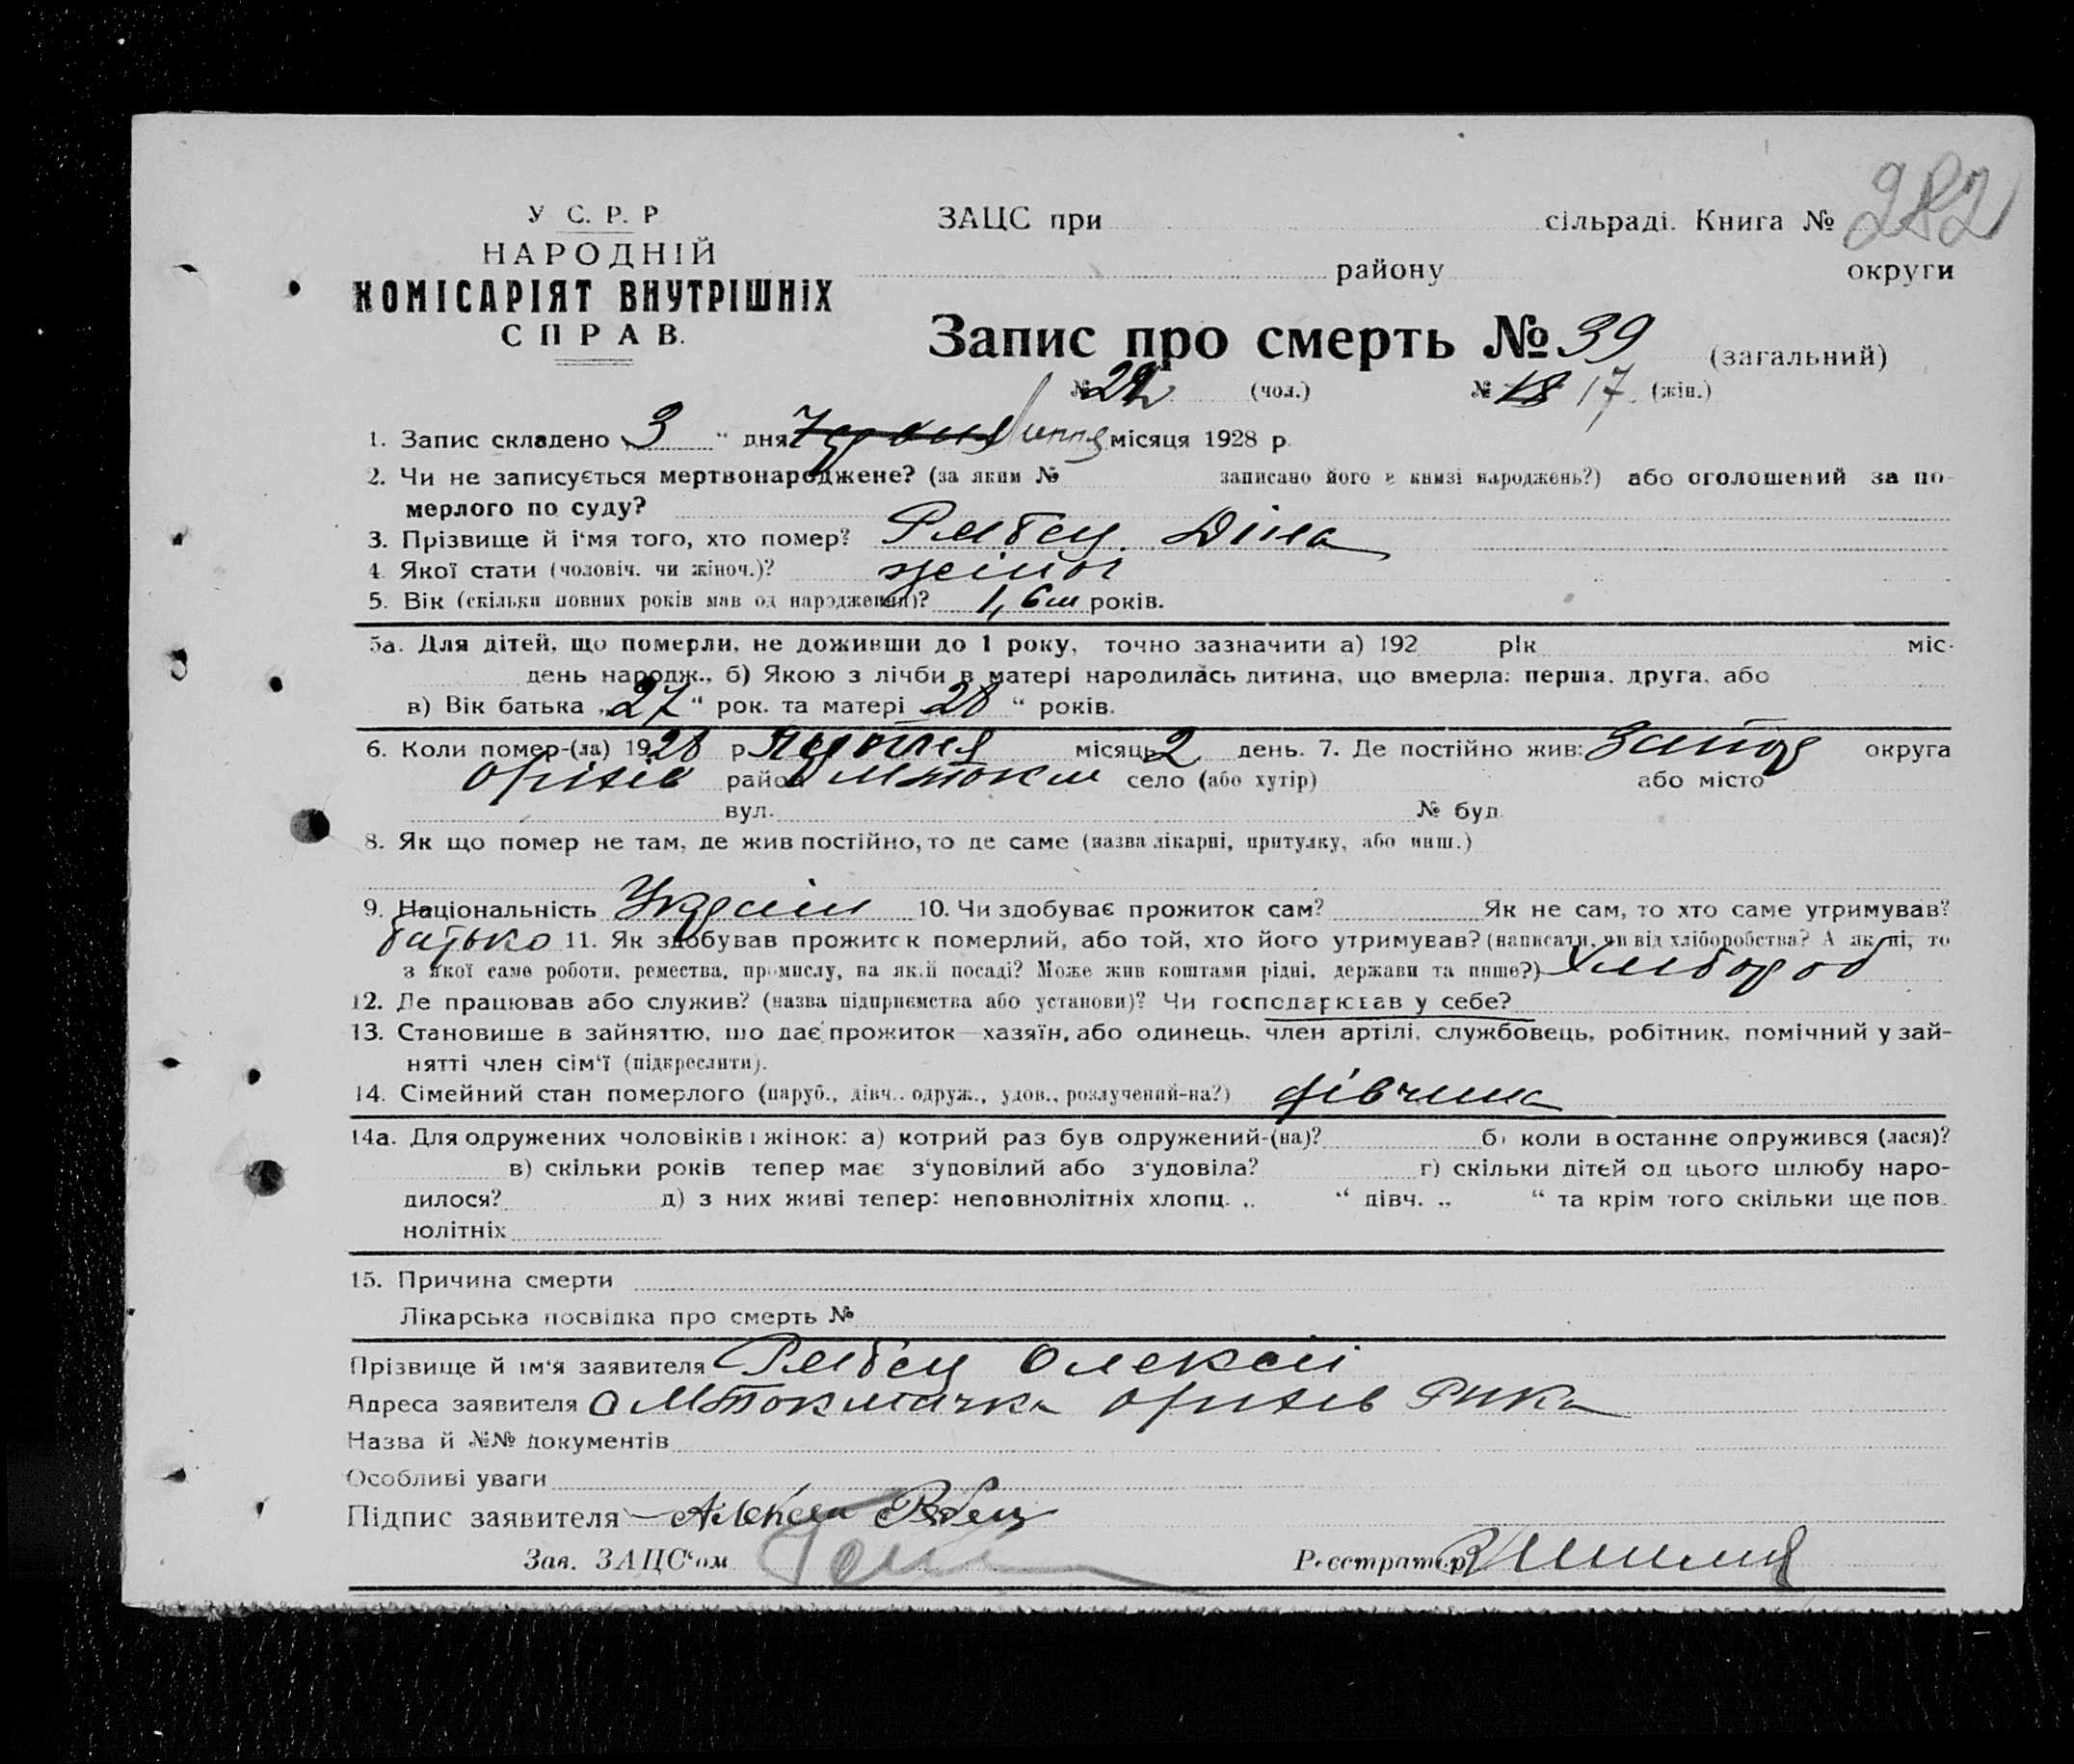 282
У С. Р. Р
НАРОДНІЙ
КОМІСАРІЯТ ВНУТРІШНІХ
СПРАВ.
ЗАЦС при сільраді. Книга №
району округи
Запис про смерть № 39 (загальний)
№ (чол.) № 18 17 (жін.)
1. Запис складено „3“ дня липня місяця 1928 р.
2. Чи не записується мертвонароджене? (за яким № записано його в книзі народжень?) або оголошений за по-
мерлого по суду?
3. Прізвище й і'мя того, хто помер? Рябец Діна
4. Якої стати (чоловіч. чи жіноч.)? жіноч
5. Вік (скільки повних років мав од народження)? 1, 6 м років.
5а. Для дітей, що померли, не доживши до 1 року, точно зазначити а) 192 рік міс.
день народж., б) Якою з лічби в матері народилась дитина, що вмерла: перша, друга, або
в) Вік батька „27“ рок. та матері „28“ років.
6. Коли помер-(ла) 1928 р. місяць 2 день. 7. Де постійно жив: Запор округа
Оріхів район М Токм село (або хутір) або місто
вул. № буд.
8. Як що помер не там, де жив постійно, то де саме (назва лікарні, притулку, або инш.)
9. Національність Україн 10. Чи здобуває прожиток сам? Як не сам, то хто саме утримував?
батько 11. Як здобував прожиток померлий, або той, хто його утримував? (написати, чи від хліборобства? А як ні, то
з якої саме роботи, ремества, промислу, на якій посаді? Може жив коштами рідні, держави та инше?) Хлібороб
12. Де працював або служив? (назва підприємства або установи)? Чи господарював у себе?
13. Становище в зайняттю, що дає прожиток—хазяїн, або одинець, член артілі, службовець, робітник, помічний у зай-
нятті член сім'ї (підкреслити).
14. Сімейний стан померлого (паруб., дівч., одруж., удов., розлучений-на?) дівчина
14а. Для одружених чоловіків і жінок: а) котрий раз був одружений-(на)? б) коли востаннє одружився (лася)?
в) скільки років тепер має з'удовілий або з'удовіла? г) скільки дітей од цього шлюбу наро-
дилося? д) з них живі тепер: неповнолітніх хлопц. „ “ дівч. „ “ та крім того скільки ще пов.
нолітніх
15. Причина смерти
Лікарська посвідка про смерть №
Прізвище й ім'я заявителя Рябец Олексій
Адреса заявителя М Токмачка Оріхів Рика
Назва й №№ документів
Особливі уваги
Підпис заявителя Алексей Рябец
Зав. ЗАЦС'ом
Реєстратор